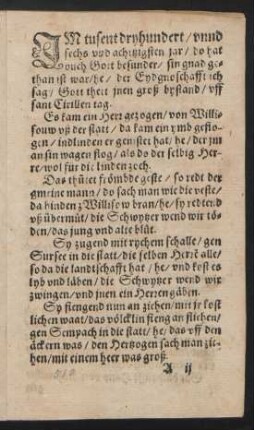 IM tusent dryhundert / vnnd
sechs vnd achtzigsten jar / do hat
ouch Gott besunder / sin gnad ge-
than ist war / he / der Eydgnoschafft ich
sag / Gott theit jnen groß bystand / vff
sant Cirillen tag.
Es kam ein Herr gezogen / von Willi-
souw vß der statt / da kam ein ymb geflo-
gen / in d linden er genistet hat / he / der jm
an sin wagen flog / als do der selbig Her-
re / wol für die linden zoch.
Das thütet frömbde geste / so redt der
gmeine mann / do sach man wie die veste /
da hinden z Willisow bran / he / sy redtend
vß übermüt / die Schwytzer wend wir tö-
den / das jung vnd alte blüt.
Sy zugend mit rychem schalle / gen
Sursee in die statt / die selben Herre alle /
so da die landtschafft hat / he / vnd kost es
lyb vnd läben / die Schwytzer wend wir
zwingen / vnd jnen ein Herren gäben.
Sy fiengend nun an ziehen / mit jr kost
lichen waat / das völcklin fieng an fliehen /
gen Sempach in die statt / he / das vff den
äckern was / den Hertzogen sach man zie-
hen / mit einem heer was groß.
A ij